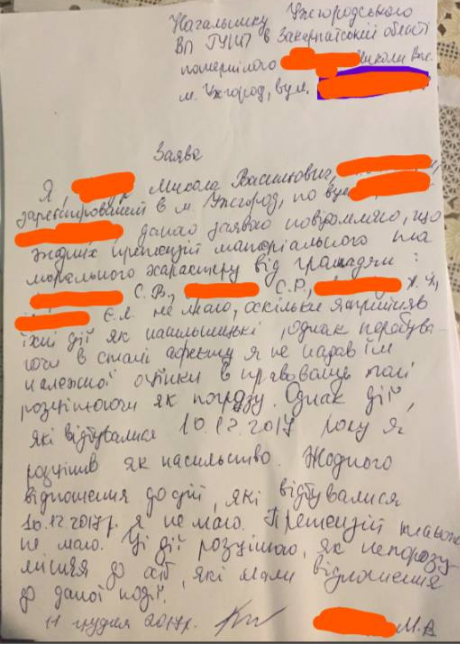 Начальнику Ужгородського
ВП ГУНП в Закарпатській області
потерпілого Миколи Вас.
м. Ужгород, вул.
Заява
Я, Микола Васильович,
зареєстрований в м. Ужгород, по вул.
даною заявою повідомляю, що
жодних претензій матеріального та
морального характеру від громадян:
С.В., С.Р.,
Є.Л. не маю, оскільки я прийняв
їхні дії як насильницькі, однак перебува-
ючи в стані афекту я не надав їм
належної оцінки в правовому полі
розцінюючи як погрозу. Однак дії,
які відбувалися 10.12.2017 року я
розцінив як насильство. Жодного
відношення до дій, які відбувалися
10.12.2017р. я не маю. Претензій також
не маю. Ці дії розцінюю, як непорозу
міння до осіб, які мали відношення
до даної події.
11 грудня 2017р. М.В